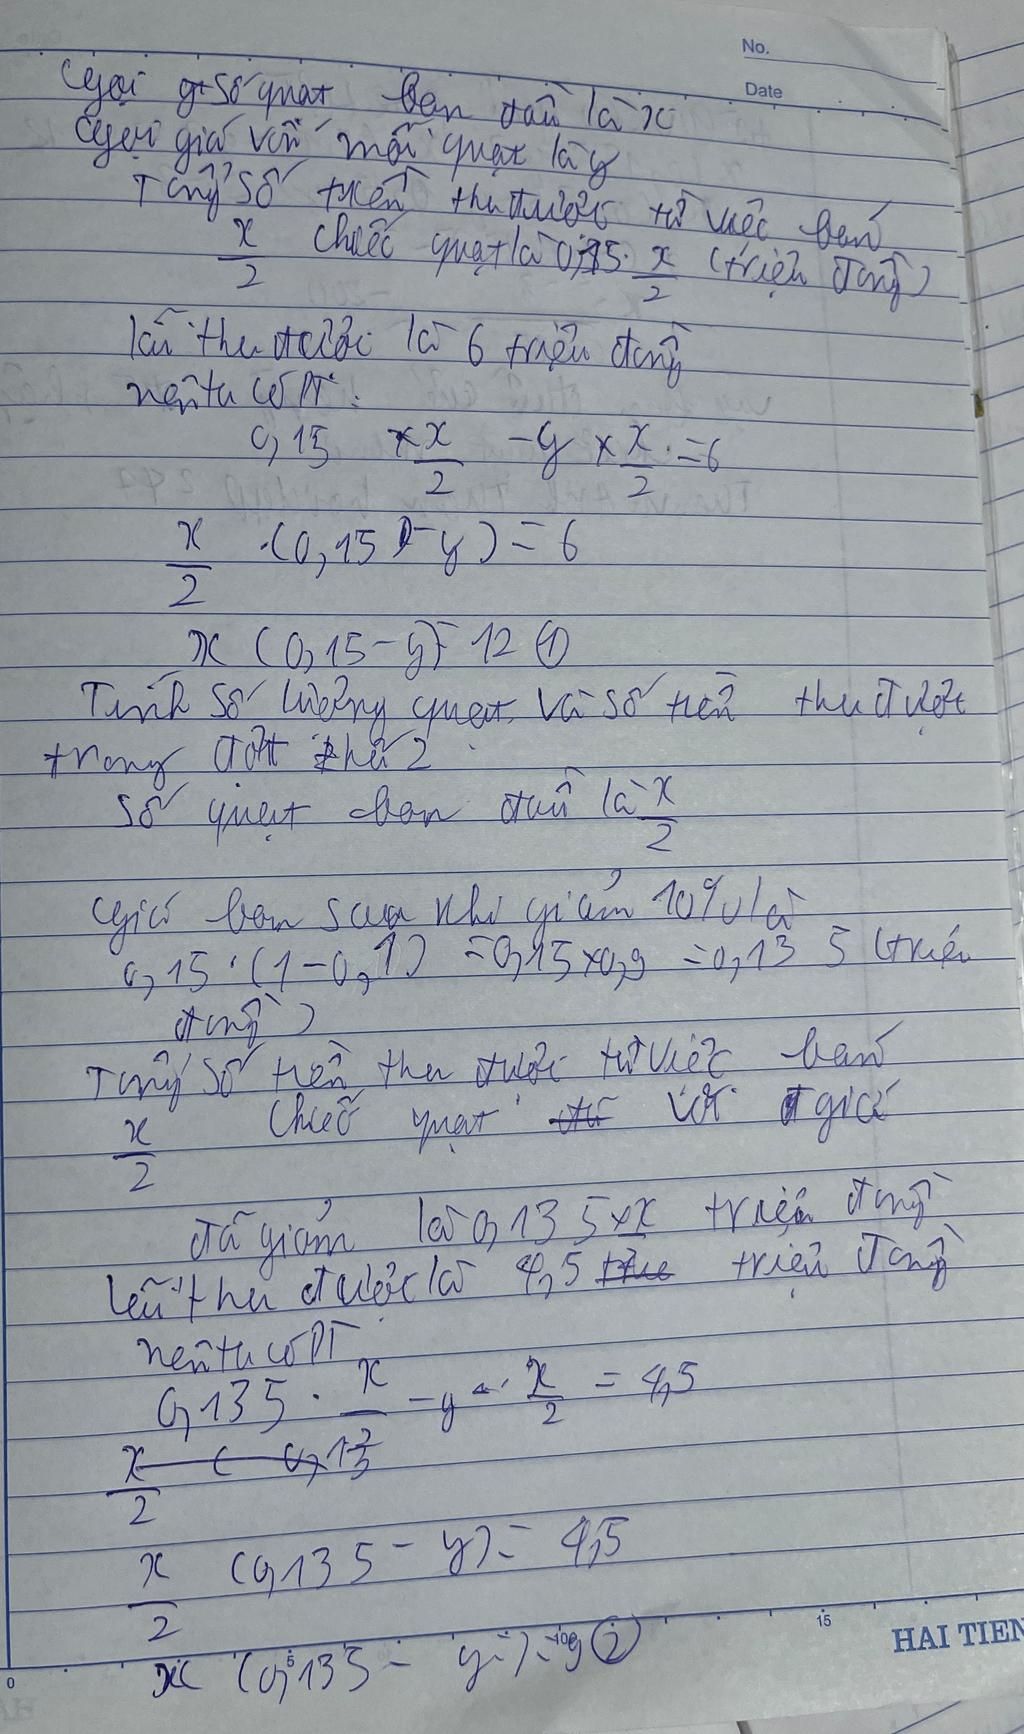 No.
Date
Gọi số quạt ban đầu là x
Gọi giá vốn mỗi quạt là y
Tổng số tiền thu được từ việc bán
x/2 chiếc quạt là 0,15. x/2 (triệu đồng)
lãi thu được là 6 triệu đồng
nên ta có PT:
0,15 × x/2 - y × x/2 = 6
x/2 .(0,15 - y) = 6
x (0,15 - y) = 12 (1)
Tính số lượng quạt và số tiền thu được
trong đợt thứ 2
Số quạt ban đầu là x/2
Giá bán sau khi giảm 10% là
0,15.(1-0,1) = 0,15×0,9 = 0,135 (triệu
đồng)
Tổng số tiền thu được từ việc bán
x/2 chiếc quạt với giá
đã giảm là 0,135 × x triệu đồng
lãi thu được là 4,5 triệu đồng
nên ta có PT
0,135 . x - y . x/2 = 4,5
x/2 ( 0,13
x/2 (0,135 - y) = 4,5
x (0,135 - y) = 9 (2)
0 5 10 15
HAI TIEN